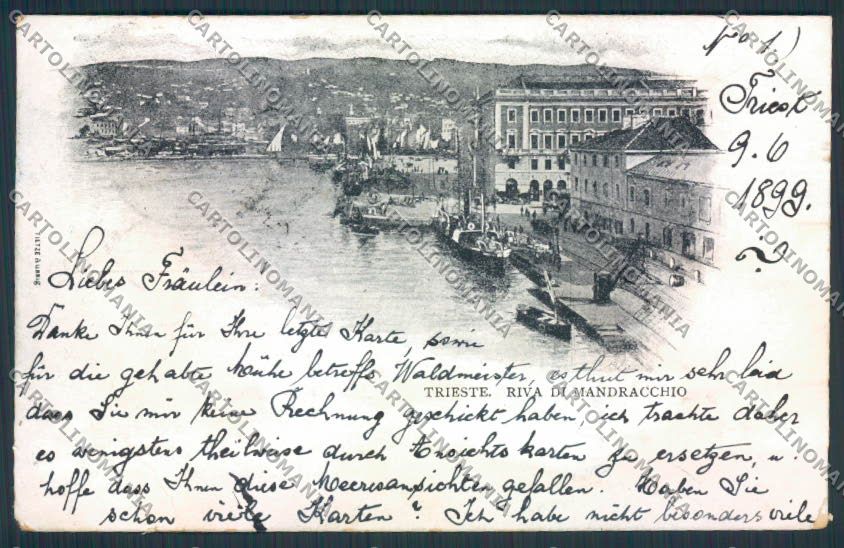 No 1)
Triest
9. 6
1899.
TIETZE & URBIG
Liebes Fräulein:
Danke Ihnen für Ihre letzte Karte, sowie
für die gehabte Mühe betreffs Waldmeister, es thut mir sehr leid
TRIESTE. RIVA DI MANDRACCHIO
dass Sie mir keine Rechnung geschickt haben, ich trachte daher
es wenigstens theilweise durch Ansichtskarten zu ersetzen, u.
hoffe dass Ihnen diese Meeresansichten gefallen. Haben Sie
schon viele Karten? Ich habe nicht besonders viele
CARTOLINOMANIA